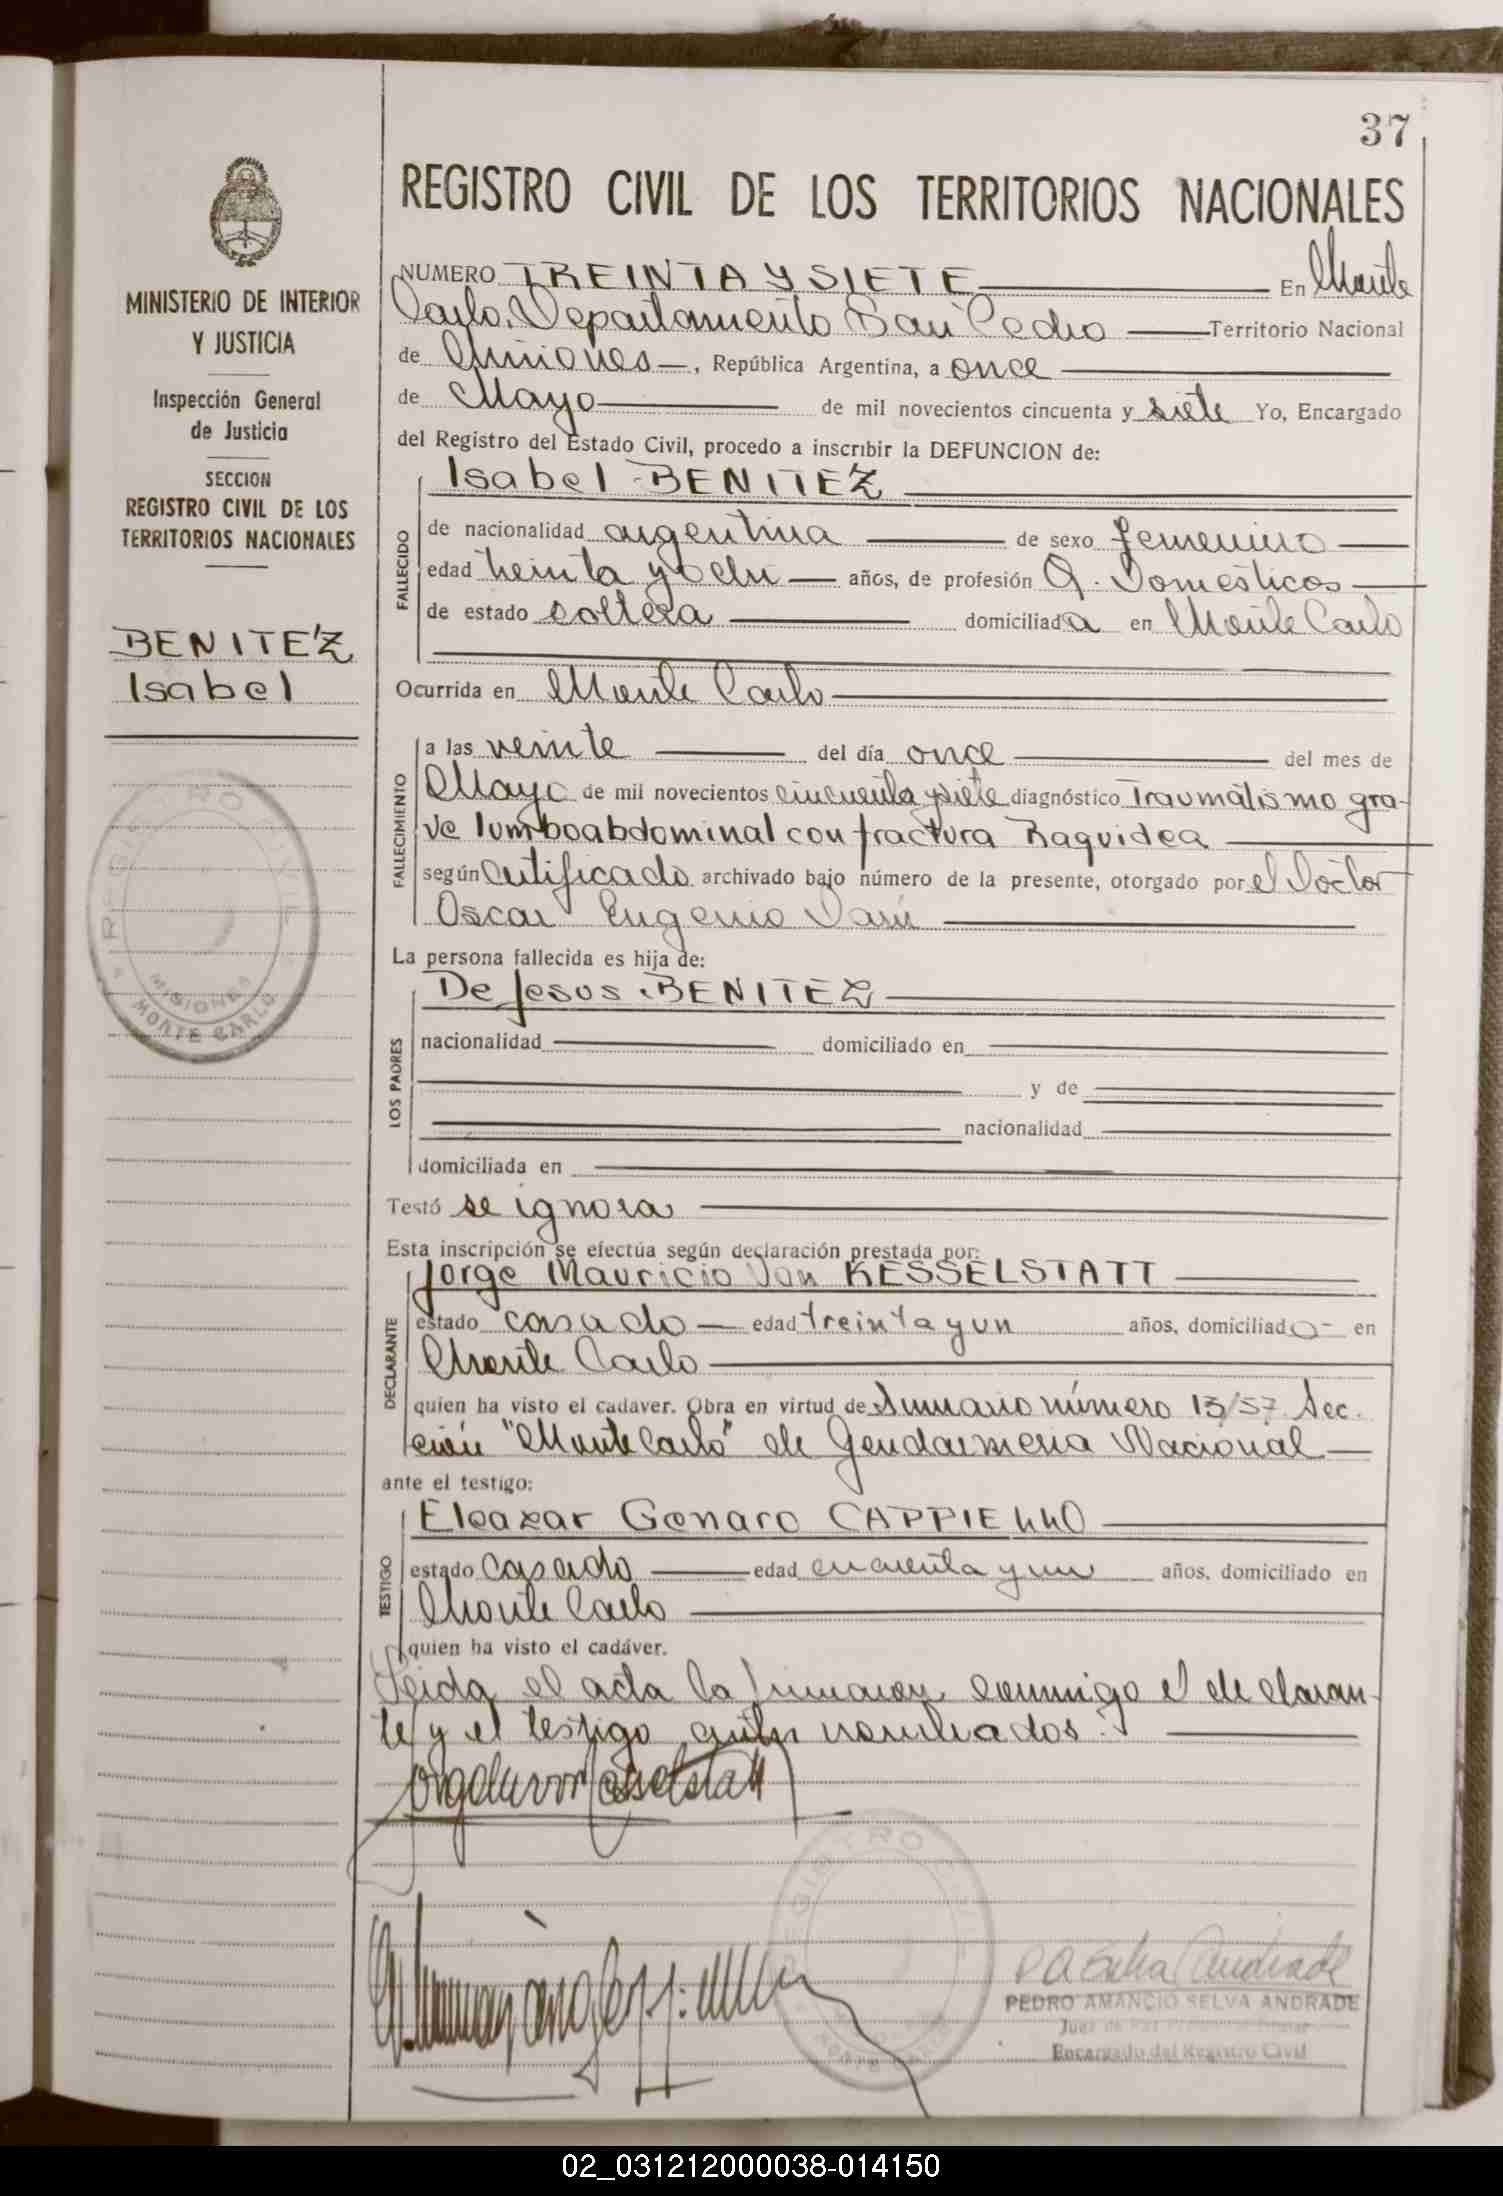 37
REGISTRO CIVIL DE LOS TERRITORIOS NACIONALES
MINISTERIO DE INTERIOR
Y JUSTICIA
Inspección General
de Justicia
SECCION
REGISTRO CIVIL DE LOS
TERRITORIOS NACIONALES
BENITE'Z
Isabel
REGISTRO CIVIL
MISIONES
MONTE CARLO
NUMERO TREINTA Y SIETE En Monte
Carlo, Departamento San Pedro Territorio Nacional
de Misiones, República Argentina, a once
de Mayo de mil novecientos cincuenta y siete Yo, Encargado
del Registro del Estado Civil, procedo a inscribir la DEFUNCION de:
Isabel BENITE'Z
FALLECIDO
de nacionalidad argentina de sexo femenino
edad treinta y ocho años, de profesión Q. Domesticos
de estado soltera domiciliada en Monte Carlo
Ocurrida en Monte Carlo
FALLECIMIENTO
a las veinte del día once del mes de
Mayo de mil novecientos cincuenta y siete diagnóstico Traumatismo gra-
ve lumboabdominal con fractura Raquidea
según Certificado archivado bajo número de la presente, otorgado por el Doctor
Oscar Eugenio
La persona fallecida es hija de:
LOS PADRES
De Jesus BENITEZ
nacionalidad domiciliado en
y de
nacionalidad
domiciliada en
Testó se ignora
Esta inscripción se efectúa según declaración prestada por:
DECLARANTE
Jorge Mauricio Von KESSELSTATT
estado casado edad treinta y un años, domiciliado en
Monte Carlo
quien ha visto el cadaver. Obra en virtud de Sumario número 13/57 Sec.
ción "Monte Carlo" de Gendarmeria Nacional
ante el testigo:
TESTIGO
Eleazar Genaro CAPPIELLO
estado casado edad cincuenta y un años, domiciliado en
Monte Carlo
quien ha visto el cadáver.
Leida el acta la firmaron conmigo el declaran-
te y el testigo nombrados.
REGISTRO CIVIL
MONTE CARLO
PEDRO AMANCIO SELVA ANDRADE
Juez de Paz
Encargado del Registro Civil
02_031212000038-014150